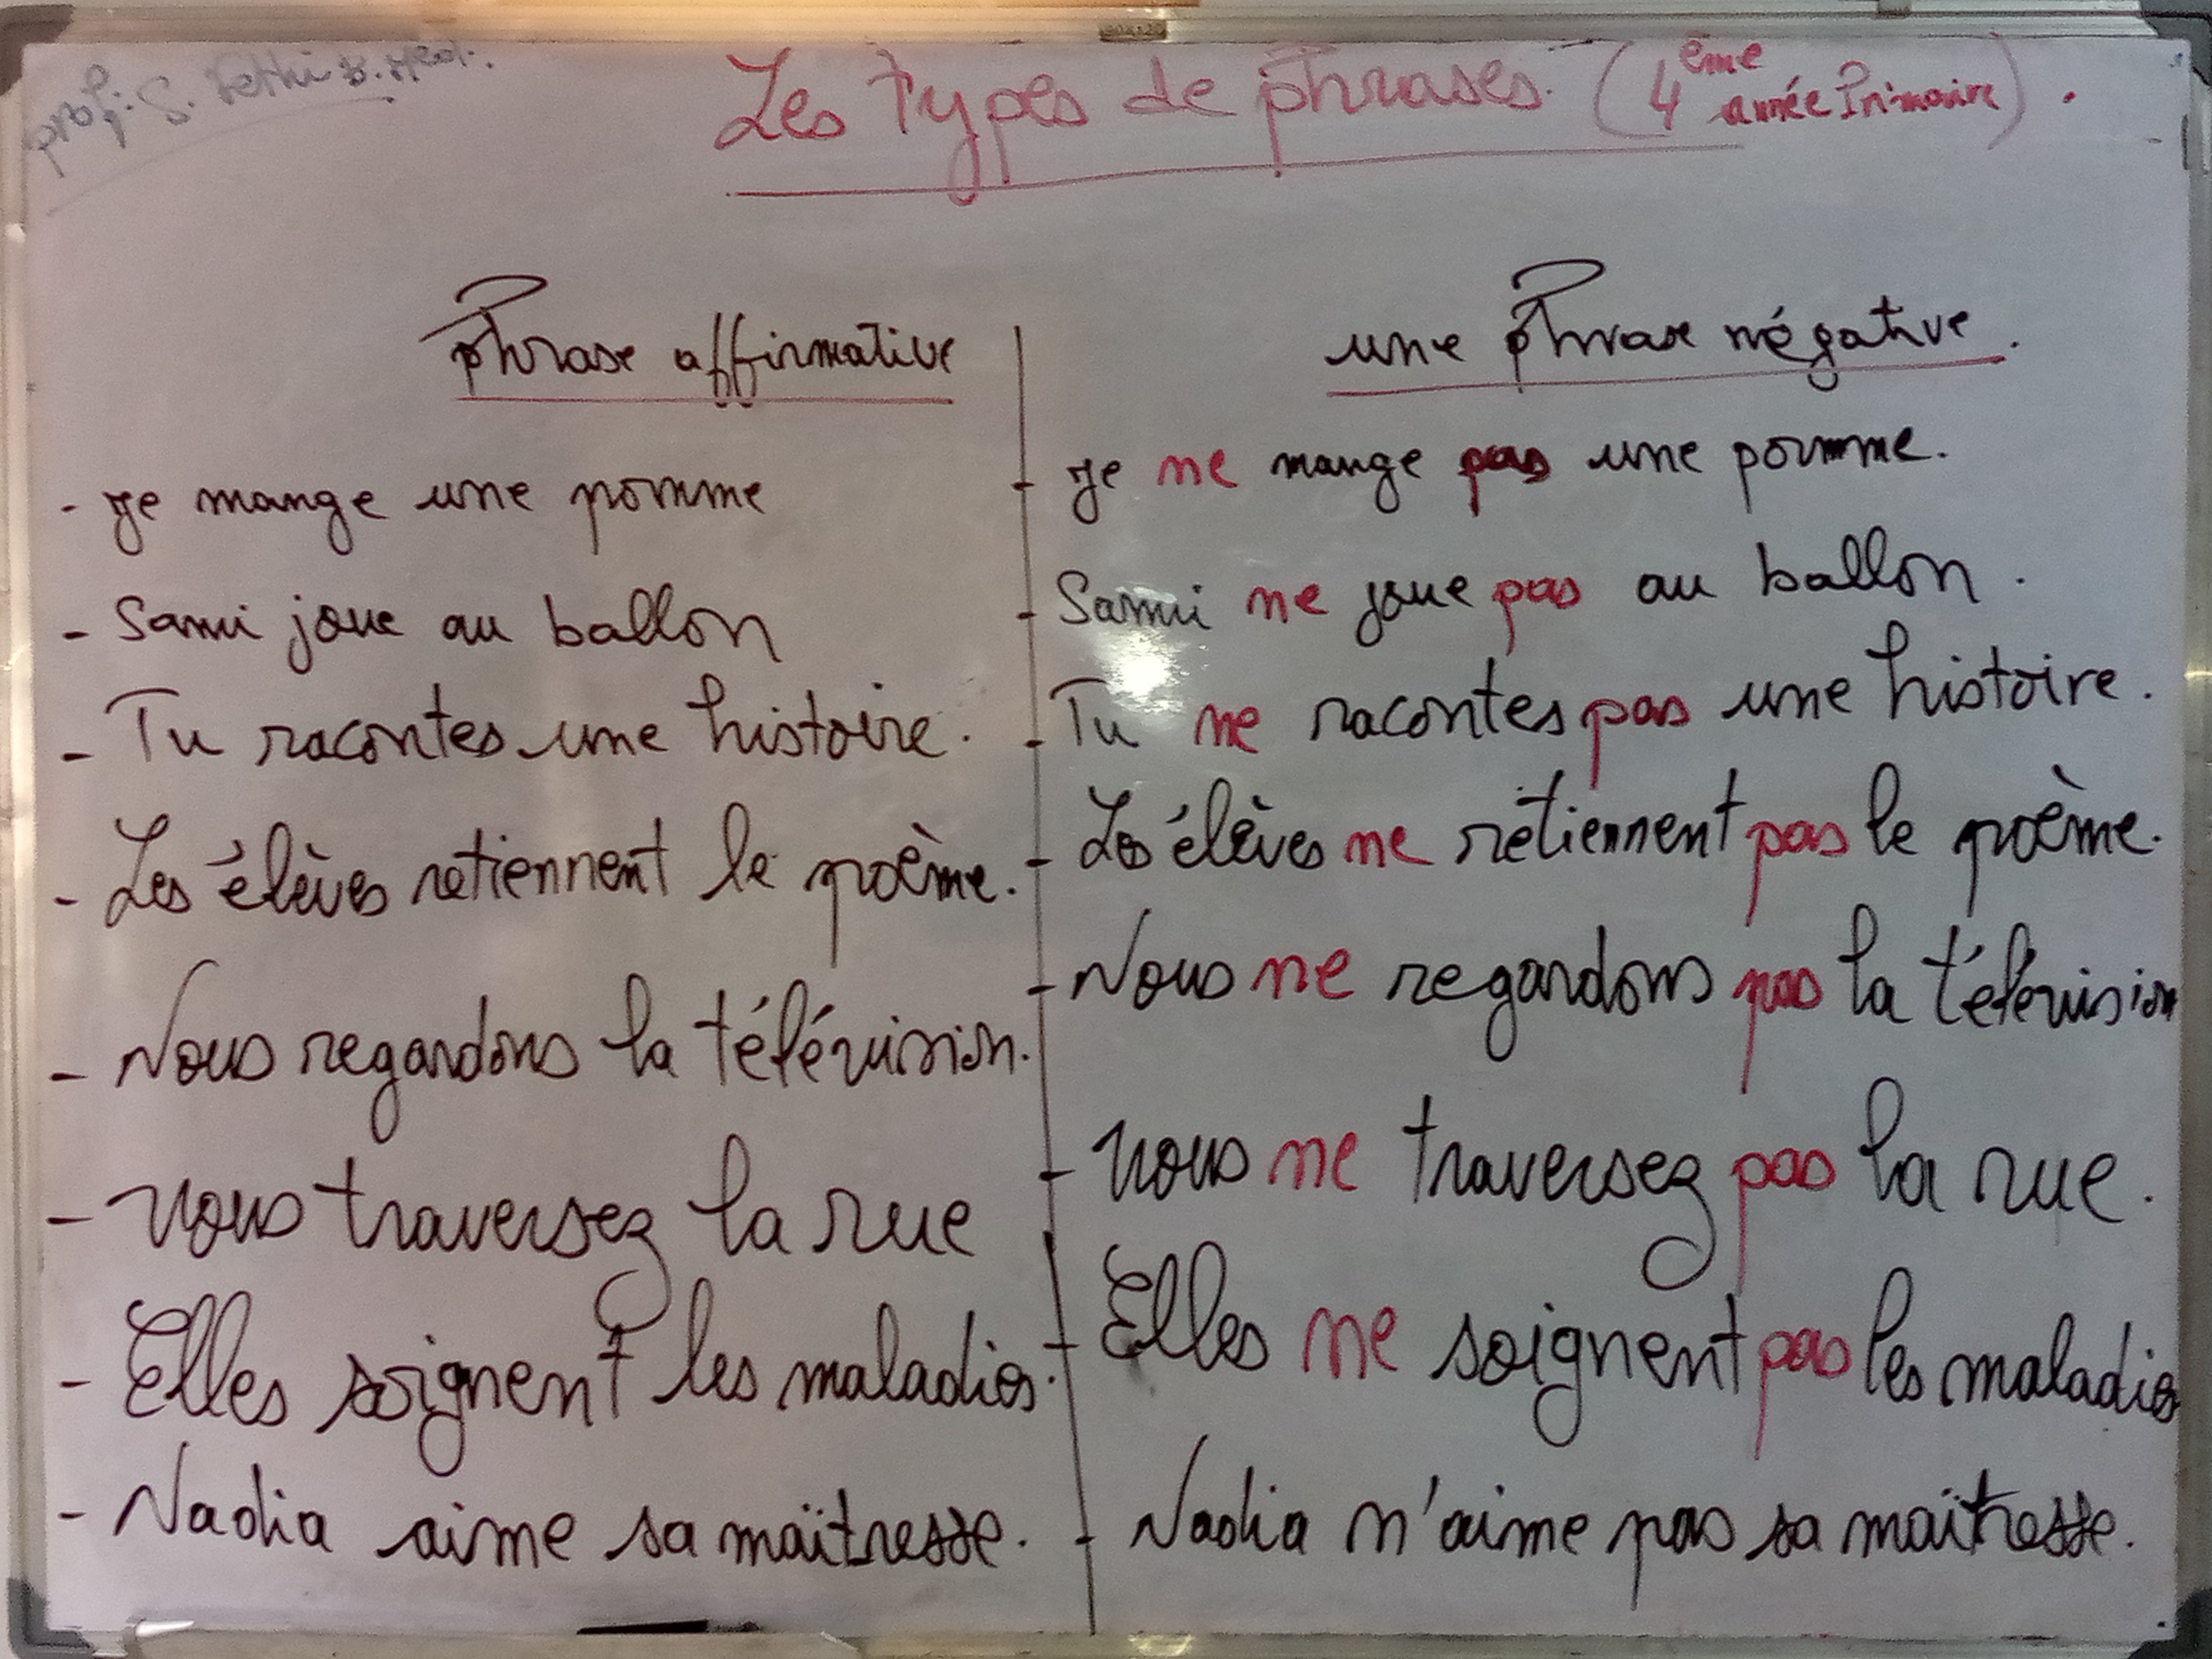 prof: S. Fethi B. Med.
Les types de phrases (4ème année Primaire).
Phrase affirmative
une phrase négative.
- je mange une pomme
- je ne mange pas une pomme.
- Sami joue au ballon
- Sami ne joue pas au ballon.
- Tu racontes une histoire.
- Tu ne racontes pas une histoire.
- Les élèves retiennent le poème.
- Les élèves ne retiennent pas le poème.
- Nous regardons la télévision.
- Nous ne regardons pas la télévision
- vous traversez la rue
- vous ne traversez pas la rue.
- Elles soignent les maladies.
- Elles ne soignent pas les maladies
- Nadia aime sa maïtresse.
- Nadia n'aime pas sa maïtresse.